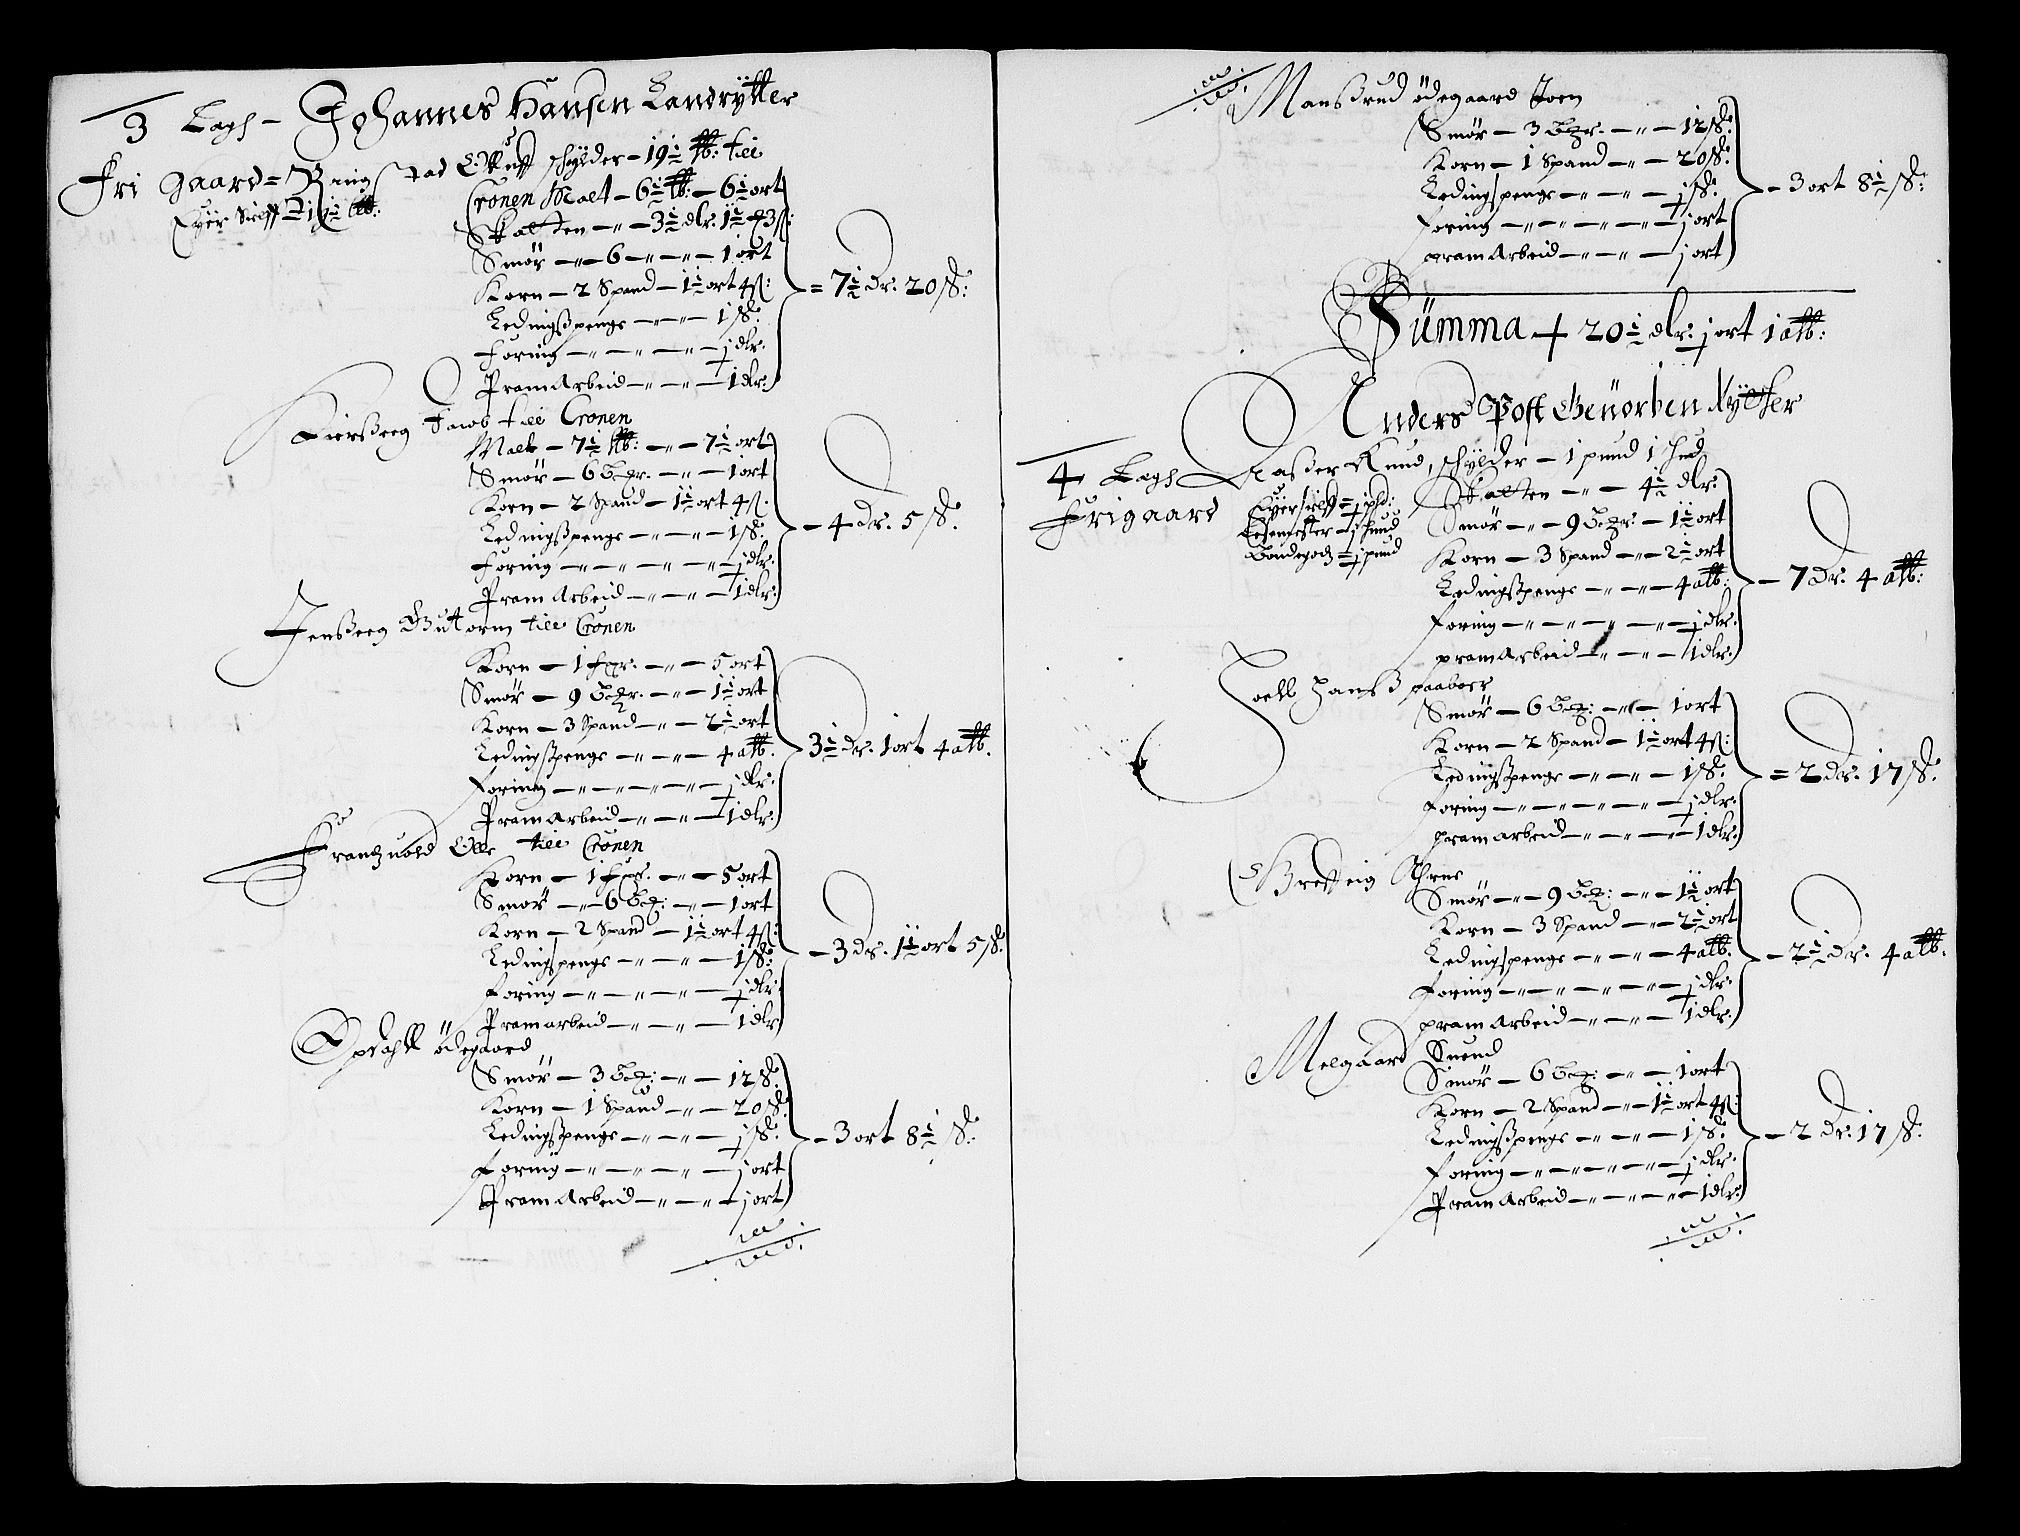 3 Lagh - Johannes Hansen Landrÿtter
Fri gaard = Ringstad schÿlder - 19½ ℔: till
Eÿer Sielff = 19½ ℔:
Cronen Malt - 6½ ℔: - 6½ ort
Skatten - " - 3½ dlr: 1½
Smör - " - 6 - " - " - 1 ort
Korn - 2 Spand - 1½ ort 4 ß:
Ledingßpenge - " - " - 1 ß:
Foring - " - " - " - ½ dlr:
Pram Arbeid - " - " - 1 dlr:
= 7½ Dr: 20 ß:
Jacob till Cronen
Malt - 7½ ℔: - " - 7½ ort
Smör - 6 - " - 1 ort
Korn - 2 Spand - 1½ ort 4 ß:
Ledingßpenge - " - " - 1 ß:
Foring - " - " - " - " - ½ dlr:
Pram Arbeid - " - " - 1 dlr:
- 4 Dr: 5 ß:
Jenßeeg Gutorm till Cronen
Korn - 1 - " - 5 ort
Smör - 9 - " - 1½ ort
Korn - 3 Spand - " - 2½ ort
Ledingßpenge - " - " - 4 alb:
Foring - " - " - " - " - ½ dlr:
Pram Arbeid - " - " - 1 dlr:
3½ Dr: 1 ort 4 alb:
Frantzuold Olle till Cronen
Korn - 1 - " - 5 ort
Smör - " - 6 - " - 1 ort
Korn - 2 Spand - 1½ ort 4 ß:
Ledingspenge - " - " - 1 ß:
Foring - " - " - " - ½ dlr:
Pram arbeid - " - " - 1 dlr
- 3 Dr: 1½ ort 5 ß:
Opdahll ödegaard
Smör - 3 - " - 12 ß:
Korn - 1 Spand - " - 20 ß:
Ledingßpenge - " - " - ½ ß:
Foring - " - " - " - ½ ort
Pram Arbeid - " - " - ½ ort
- 3 ort 8½ ß:
Manßrud ödegaard Joen
Smör - 3 - " - 12 ß:
Korn - 1 Spand - " - 20 ß:
Ledingspenge - " - " - ½ ß:
Foring - " - " - " - " - ½ ort
pram Arbeid - " - " - ½ ort
- 3 ort 8½ ß:
Sümma + 20½ dlr: ½ ort 1 alb:
Anders Post Geuorben Rÿtter
4 Lagh Knud, schÿlder - 1 pund 1 hud
Frigaard
Eÿer sielff = ½ pd:
- ½ huud
Bondegodz = ½ pund
Skatten - " - 4½ dlr:
Smör - " - 9 - 1½ ort
Korn - 3 Spand - " - 2½ ort
Ledingßpenge - " - " - 4 alb:
Foring - " - " - " - " - ½ dlr:
pram Arbeid - " - " - 1 dlr:
- 7 Dr: 4 alb:
Joell Hanß paaboer
Smör - 6 - " - 1 ort
Korn - 2 Spand - 1½ ort 4 ß:
Ledingßpenge - " - " - 1 ß:
Foring - " - " - " - " - ½ dlr:
pram arbeid - " - " - 1 dlr:
= 2 Dr: 17 ß:
Bretteig
Smör - " - 9 - " - 1½ ort
Korn - 3 Spand - " - 2½ ort
Ledingspenge - " - " - 4 alb:
Foring - " - " - " - " - ½ dlr:
pram Arbeid - " - " - 1 dlr:
- 2½ Dr: 4 alb:
Melgaard Suend
Smör - 6 - " - 1 ort
Korn - 2 Spand - " - 1½ ort 4 ß:
Ledingßpenge - " - " - 1 ß:
Foring - " - " - " - " - ½ dlr:
Pram Arbeid - " - " - " - 1 dlr:
- 2 Dr: 17 ß: